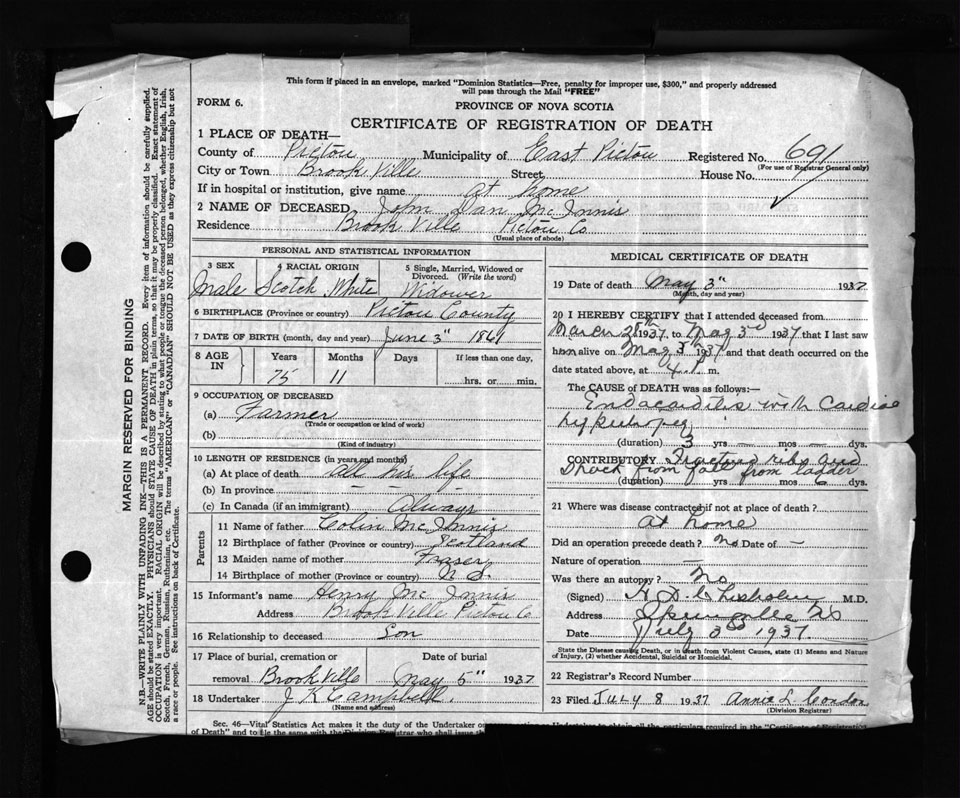 This form if placed in an envelope, marked "Dominion Statistics—Free, penalty for improper use, $300," and properly addressed
will pass through the Mail "FREE"
FORM 6.
PROVINCE OF NOVA SCOTIA
CERTIFICATE OF REGISTRATION OF DEATH
1 PLACE OF DEATH—
County of Pictou Municipality of East Pictou Registered No. 691
(For use of Registrar General only)
City or Town Brook Ville Street House No.
If in hospital or institution, give name at home
2 NAME OF DECEASED John Dan Mc Innis
Residence Brook Ville Pictou Co
(Usual place of abode)
PERSONAL AND STATISTICAL INFORMATION
3 SEX 4 RACIAL ORIGIN 5 Single, Married, Widowed or
Divorced. (Write the word)
Male Scotch White Widower
6 BIRTHPLACE (Province or country) Pictou County
7 DATE OF BIRTH (month, day and year) June 3" 1861
8 AGE IN Years Months Days If less than one day,
75 11 hrs. or min.
9 OCCUPATION OF DECEASED
(a) Farmer
(Trade or occupation or kind of work)
(b)
(Kind of industry)
10 LENGTH OF RESIDENCE (in years and months)
(a) At place of death all his life
(b) In province —
(c) In Canada (if an immigrant) Always
Parents
11 Name of father Colin Mc Innis
12 Birthplace of father (Province or country) Scotland
13 Maiden name of mother Fraser
14 Birthplace of mother (Province or country) N S.
15 Informant's name Henry Mc Innis
Address Brook Ville Pictou Co
16 Relationship to deceased Son
17 Place of burial, cremation or Date of burial
removal Brook Ville May 5" 1937
18 Undertaker J K Campbell.
(Name and address)
MEDICAL CERTIFICATE OF DEATH
19 Date of death May 3" 1937
(Month, day and year)
20 I HEREBY CERTIFY that I attended deceased from
March 28th 1937 to May 3rd 1937 that I last saw
him alive on May 3rd 1937 and that death occurred on the
date stated above, at m.
The CAUSE OF DEATH was as follows:
Endocarditis with Cardiac
(duration) 3 yrs — mos — dys.
CONTRIBUTORY Fractured ribs and
Shock from fall from ladder
(duration) yrs mos dys.
21 Where was disease contracted if not at place of death?
at home
Did an operation precede death? No Date of —
Nature of operation —
Was there an autopsy? No
(Signed) Chisholm M.D.
Address Springville NS
Date July 3rd 1937.
State the Disease causing Death, or in Death from Violent Causes, state (1) Means and Nature
of Injury, (2) whether Accidental, Suicidal or Homicidal.
22 Registrar's Record Number
23 Filed JULY 8 1937 Annie L
(Division Registrar)
Sec. 46—Vital Statistics Act makes it the duty of the Undertaker
of Death" and to file the same with the Division Registrar who shall issue
MARGIN RESERVED FOR BINDING
N.B.—WRITE PLAINLY WITH UNFADING INK—THIS IS A PERMANENT RECORD. Every item of information should be carefully supplied.
AGE should be stated EXACTLY. PHYSICIANS should STATE CAUSE OF DEATH in plain terms, so that it may be properly classified. Exact statement of
OCCUPATION is very important. RACIAL ORIGIN will be described by stating to what people or tongue the deceased person belonged, whether English, Irish,
Scotch, French, German, Russian, Ruthenian, etc. The terms "AMERICAN" or "CANADIAN" SHOULD NOT BE USED as they express citizenship but not
a race or people. See instructions on back of Certificate.